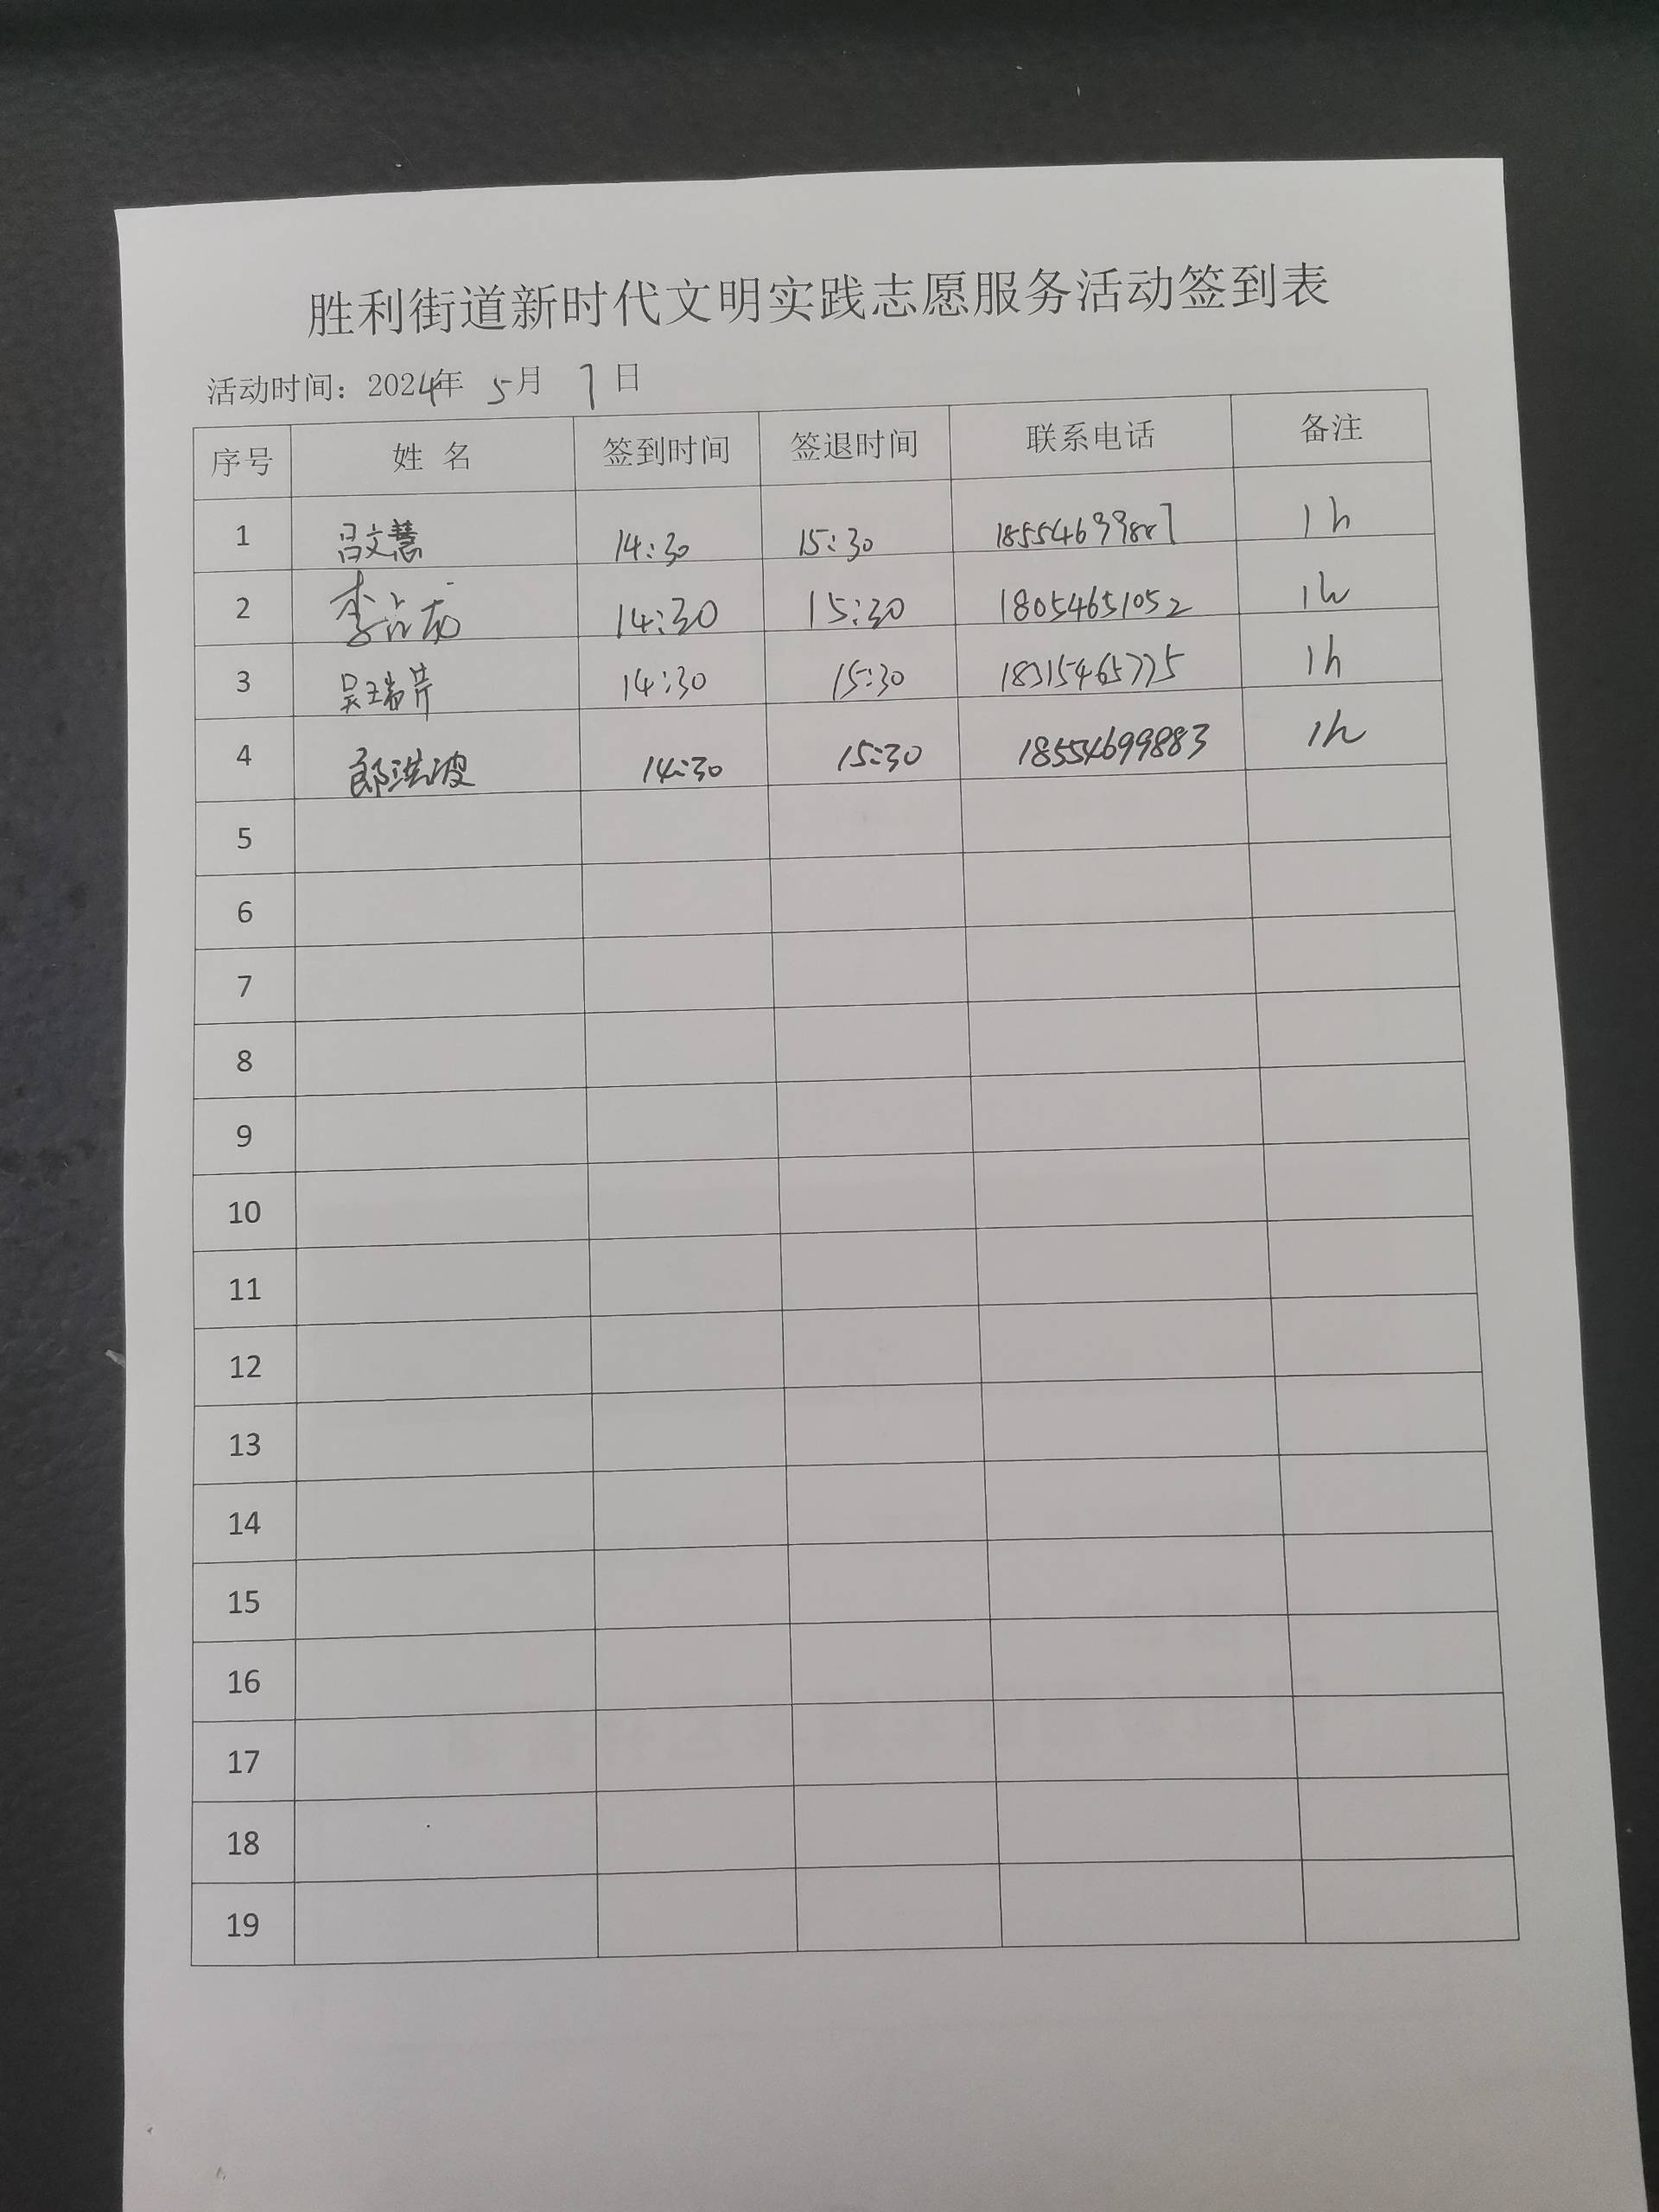 胜利街道新时代文明实践志愿服务活动签到表
活动时间：2024年 5月 7日
序号 姓 名 签到时间 签退时间 联系电话 备注
1 吕文慧 14:30 15:30 18554699887 1h
2 李占龙 14:30 15:30 18054651052 1h
3 吴瑞芹 14:30 15:30 18315465775 1h
4 郎洪波 14:30 15:30 18554699883 1h
5
6
7
8
9
10
11
12
13
14
15
16
17
18
19